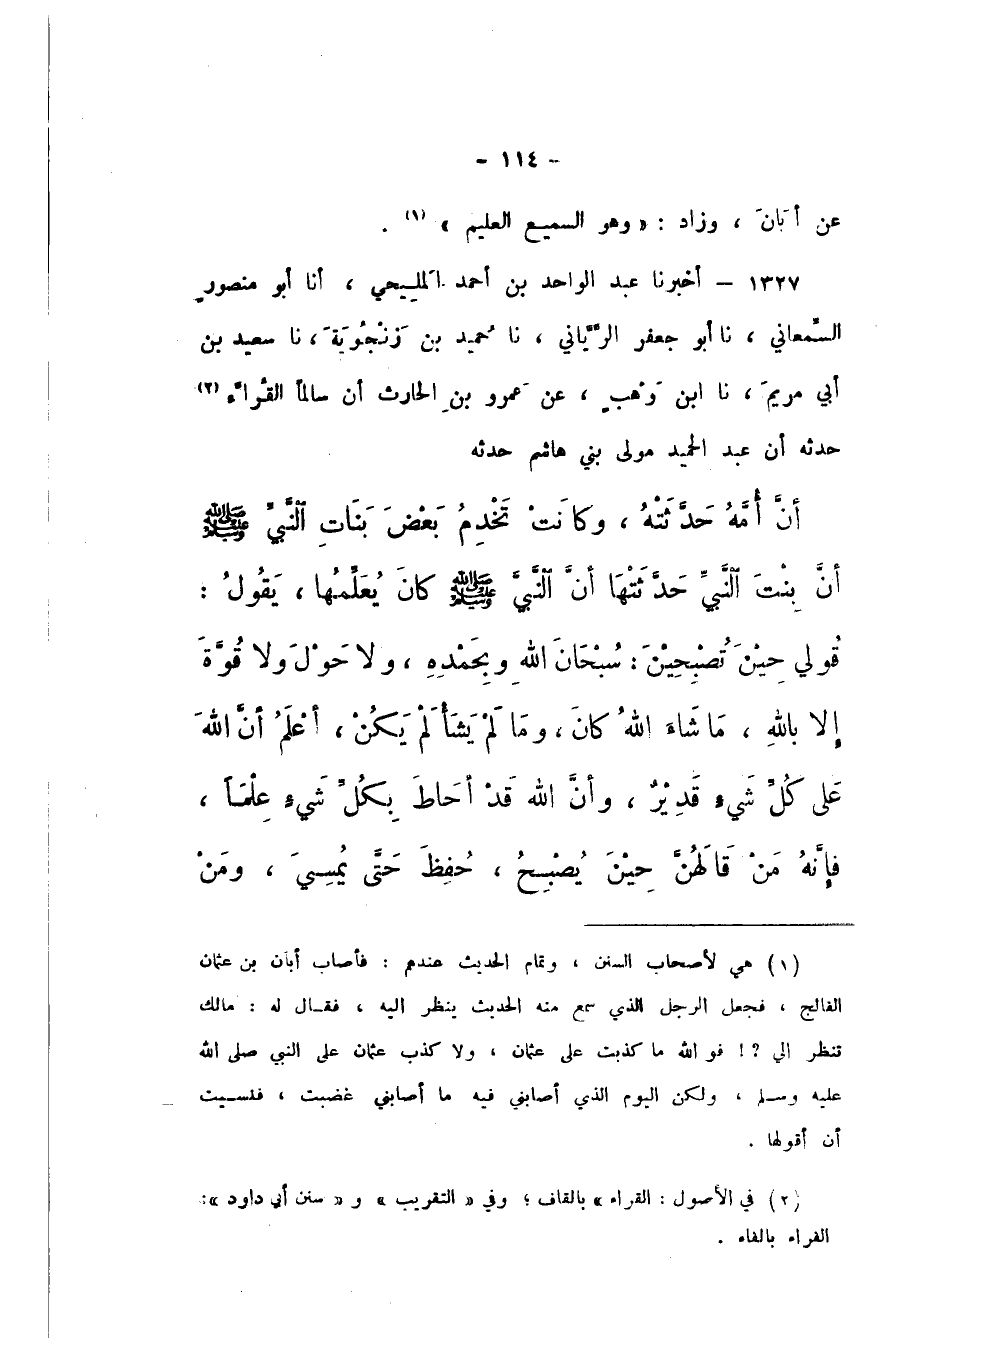 - ١١٤ -
عن أَبَانَ ، وزاد : « وهو السميع العليم » (١) .
١٣٢٧ – أخبرنا عبد الواحد بن أحمد المَلِيحي ، أنا أبو منصورٍ
السَّمعاني ، نا أبو جعفر الرَّيَّاني ، نا حُميد بن زَنْجُوَيَة َ، نا سعيد بن
أبي مريمَ ، نا ابن وَهْبٍ ، عن عَمرو بنِ الحارث أن سالمًا القُرَّاءَ (٢)
حدثه أن عبد الحميد مولى بني هاشم حدثه
أنَّ أُمَّهُ حَدَّثَتْهُ ، وكَانَتْ تَخْدِمُ بَعْضَ بَنَاتِ النَّبيِّ ﷺ
أنَّ بِنْتَ النَّبيِّ حَدَّثَتْهَا أنَّ النَّبيَّ ﷺ كانَ يُعَلِّمُها ، يَقُولُ :
قُولي حِيْنَ تُصْبِحِيْنَ : سُبْحَانَ اللهِ وبِحَمْدِهِ ، ولا حَوْلَ ولا قُوَّةَ
إلا باللهِ ، مَا شَاءَ اللهُ كانَ ، ومَا لَمْ يَشَأْ لَمْ يَكُنْ ، أعْلَمُ أنَّ اللهَ
عَلى كُلِّ شَيءٍ قَدِيْرٌ ، وأنَّ الله قَدْ أحَاطَ بِكُلِّ شَيءٍ عِلْمَاً ،
فإنَّهُ مَنْ قَالَهُنَّ حِيْنَ يُصْبِحُ ، حُفِظَ حَتَّى يُمْسِيَ ، ومَنْ
(١) هي لأصحاب السنن ، وتمام الحديث عندهم : فأصاب أبان بن عثمان
الفالج ، فجعل الرجل الذي سمع منه الحديث ينظر اليه ، فقال له : مالك
تنظر الي ؟! فو الله ما كذبت على عثمان ، ولا كذب عثمان على النبي صلى الله
عليه وسلم ، ولكن اليوم الذي أصابني فيه ما أصابني غضبت ، فنسيت
أن أقولها .
(٢) في الأصول : القراء » بالقاف ؛ وفي « التقريب » و « سنن أبي داود »:
الفراء بالفاء .